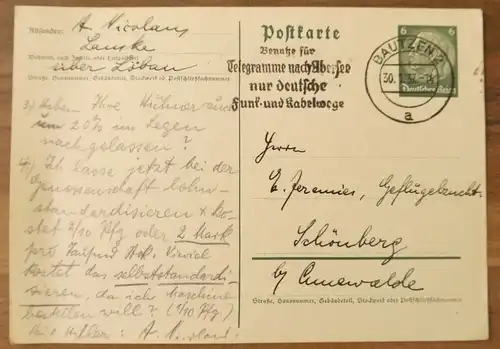 Absender: A. Nicolaus
Lauske
Wohnort, auch Zustell- oder Leitpostamt
über Löbau
Straße, Hausnummer, Gebäudeteil, Stockwerk od. Postschließfachnummer
3) Haben Ihre Hühner auch
um 20% im Legen
nachgelassen?
4) Ich lasse jetzt bei der
Genossenschaft lohn-
standardisieren + ko-
stet 2/10 Pfg oder 2 Mark
pro Tausend Stck. Wieviel
kostet das selbststandardi-
sieren, da ich Maschine
bestellen will? (1/10 Pfg)
Heil Hitler: A. Nicolaus
Postkarte
Benutze für
Telegramme nach Übersee
nur deutsche
Funk- und Kabelwege
BAUTZEN 2
30.
a
6 6
Deutsches Reich
Herrn
E. Jeremies, Geflügelzucht
Schönberg
b/ Cunewalde
Straße, Hausnummer, Gebäudeteil, Stockwerk oder Postschließfachnummer